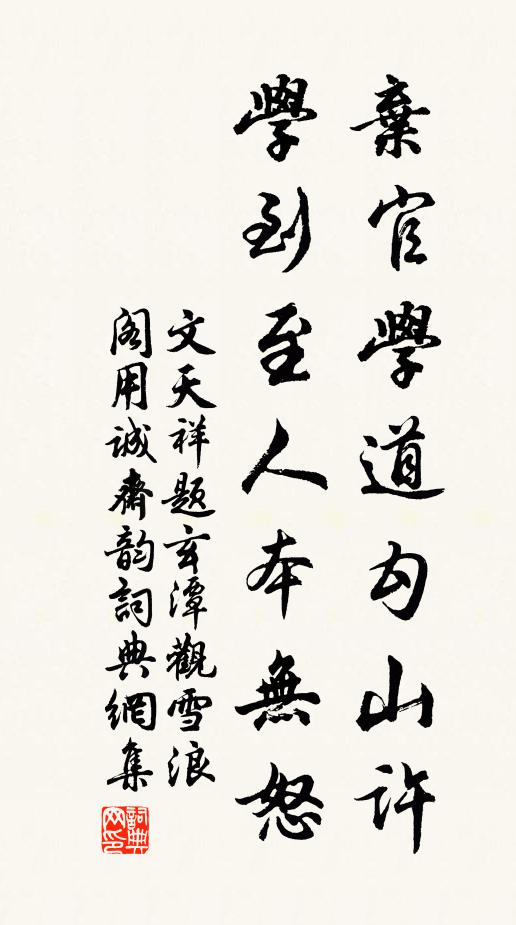 棄官學道勾山許
學到至人本無怒
文天祥題玄潭觀雪浪
閣用誠齋韵詞典網集
詞典
网印